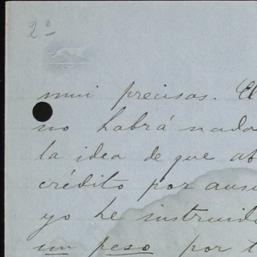 2º
mui precisas. El
no habrá nada
la idea de que ab
crédito por aus
yo he instruid
un peso por t